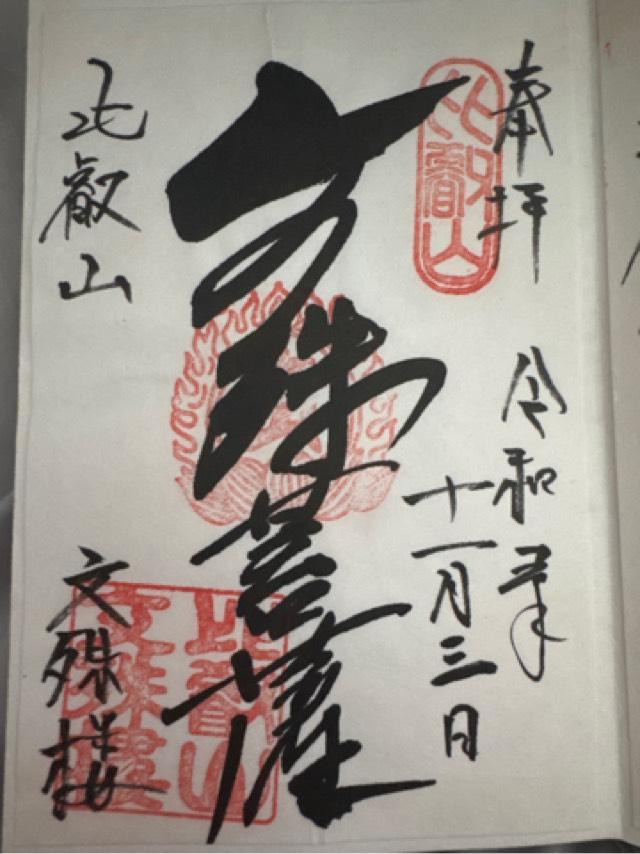 奉拝
比叡山
令和五年
十一月三日
文殊菩薩
比叡山
文殊楼
比叡山
文殊楼